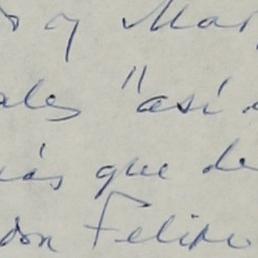 y Mar
ales "así
más que de
don Felipe